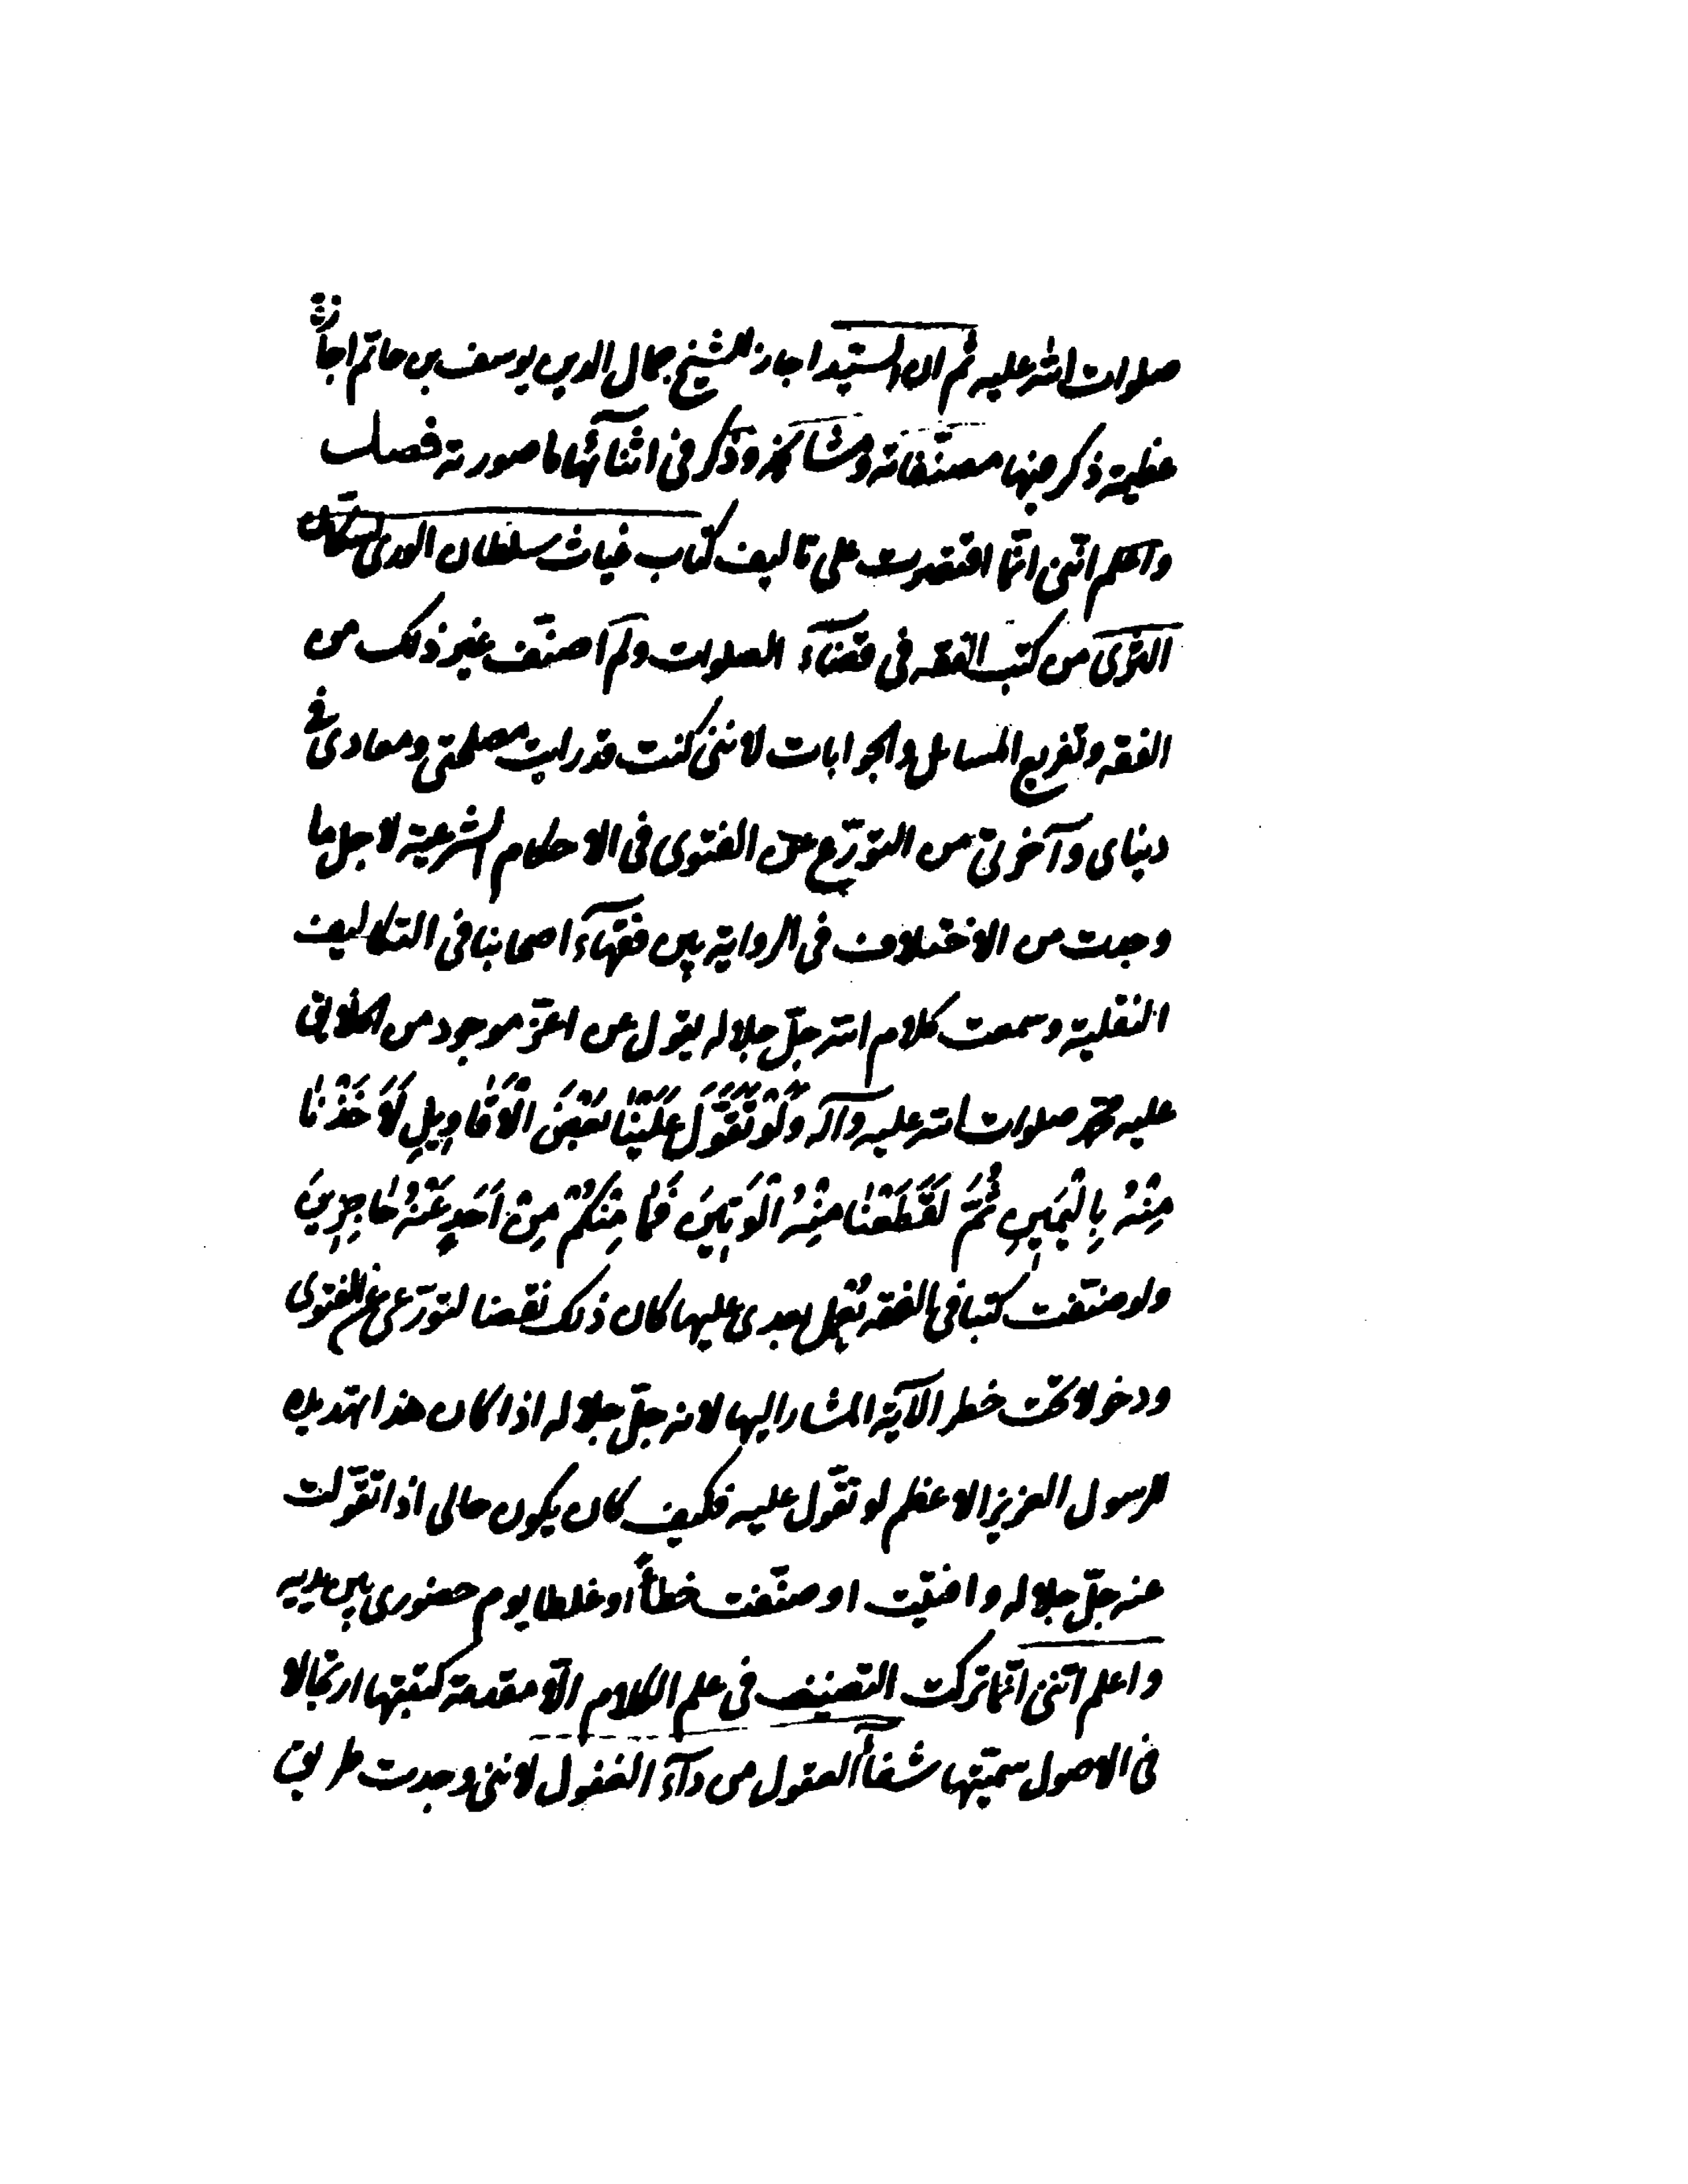 صلوات الله عليه ثم ان السيد اجاز للشيخ جمال الدين يوسف بن حاتم اجازة
عظيمة ذكر فيها مصنّفاته ومشايخه وذكر فى اثنائها ما صورته فصل
واعلم انّنى انّما اقتصرت على تاليف كتاب غياث سلطان الورى لسكان
الثرى من كتب الفقه فى قضآء الصلوات ولم اصنّف غير ذلك من
الفقه وتفريع المسائل والجوابات لاننى كنت قد رايت مصلحتى ومعادى فى
دنياى وآخرتى من التورّع عن الفتوى فى الاحكام الشرعية لاجل ما
وجدت من الاختلاف فى الرواية بين فقهآء اصحابنا فى التكاليف
النقلية وسمعت كلام الله جلّ جلاله يقول عن اعزّ موجود من الخلايق
عليه محمد صلوات الله عليه وآله وَلَوْ تَقَوَّلَ عَلَيْنَا بَعْضَ الْأَقَاوِيلِ لَأَخَذْنَا
مِنْهُ بِالْيَمِينِ ثُمَّ لَقَطَعْنَا مِنْهُ الْوَتِينَ فَمَا مِنْكُمْ مِنْ أَحَدٍ عَنْهُ حَاجِزِينَ
ولو صنّفت كتبا فى الفقه يُعْمل بعدى عليها كان ذلك نقضا لتورّعى عن الفتوى
ودخولا تحت خطر الآية المشار اليها لانه جلّ جلاله اذا كان هذا تهديده
للرسول العزيز الاعظم لو تقوّل عليه فكيف كان يكون حالى اذا تقوّلت
عنه جلّ جلاله وافتيت او صنّفت خطأً او غلطا يوم حضورى بين يديه
واعلم انّنى انّما تركت التصنيف فى علم الكلام الّا مقدمة كتبتها ارتجالا
فى الاصول سمّيتها شفآء العقول من دآء الفضول لاننى وجدت طريق